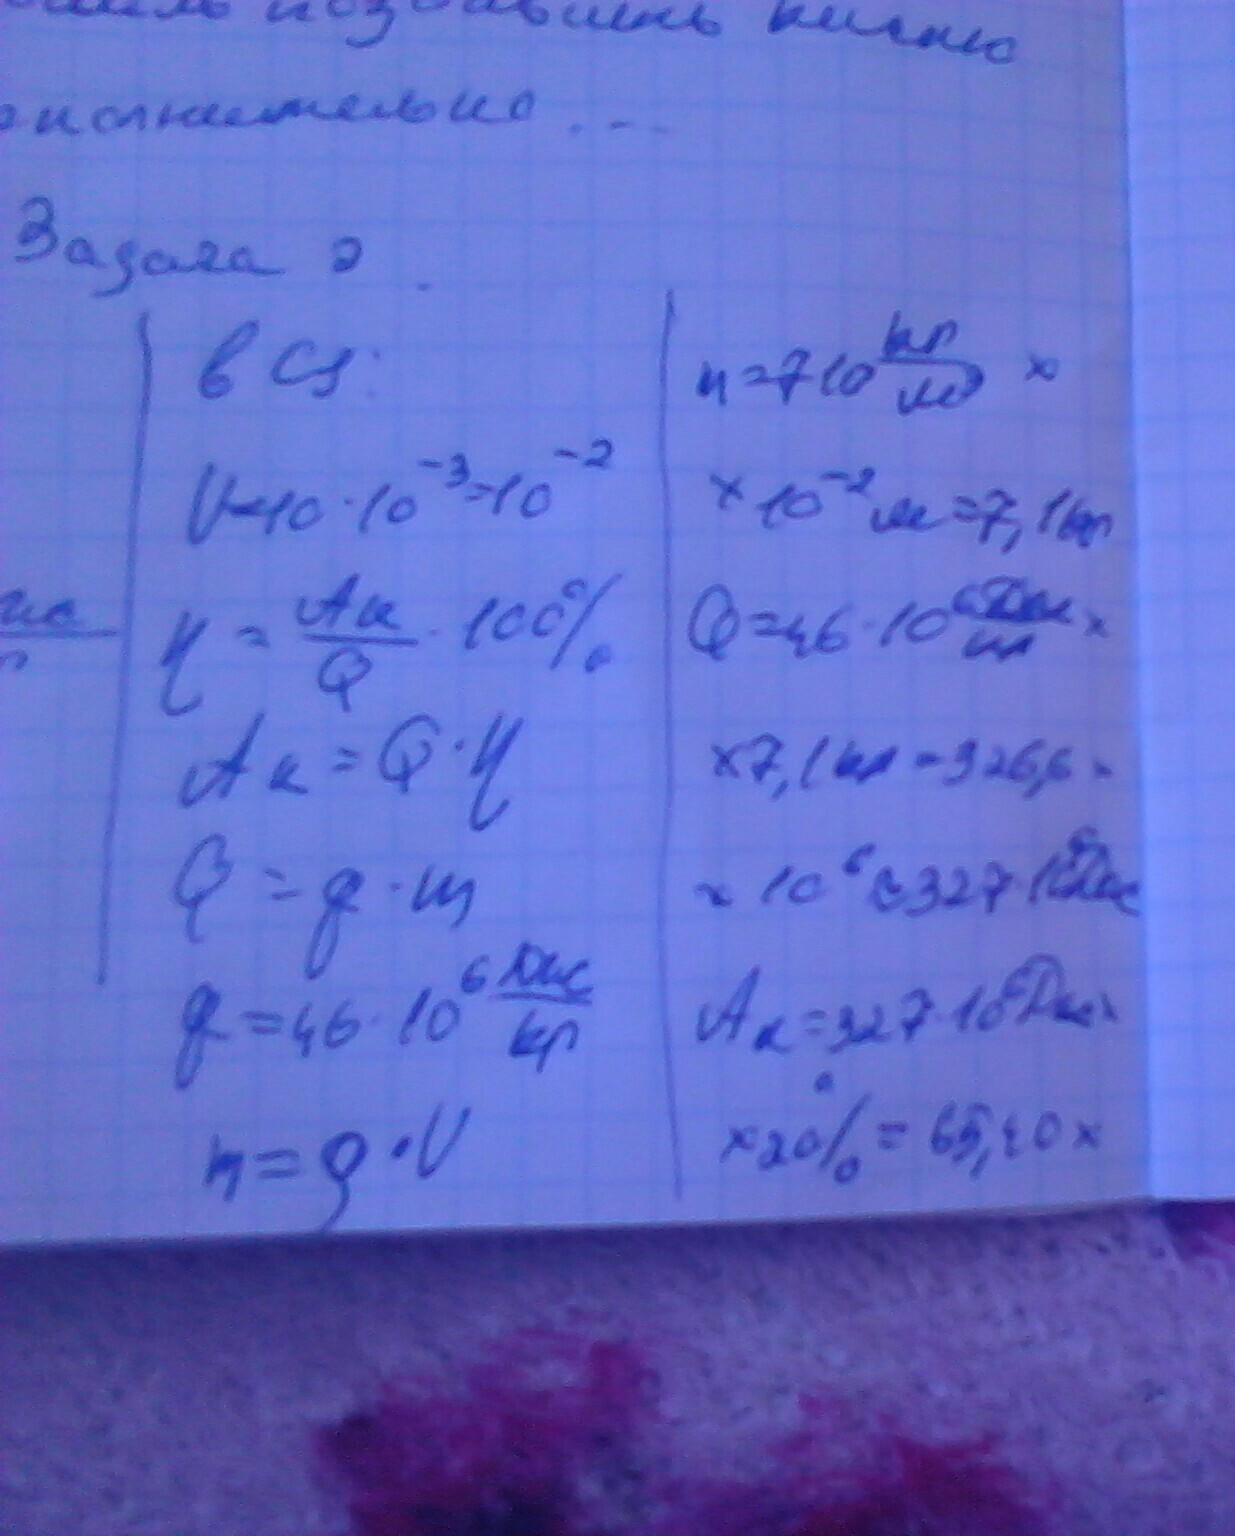 Задача 2.
в СИ:
V=10·10⁻³=10⁻²
η = Aп/Q · 100%
Aп = Q·η
Q = q·m
q = 46·10⁶ Дж/кг
m = ρ·V
m = 710 кг/м³ ×
× 10⁻² м = 7,1 кг
Q = 46·10⁶ Дж/кг ×
× 7,1 кг = 326,6 ×
× 10⁶ ≈ 327·10⁶ Дж
Aп = 327·10⁶ Дж ×
× 20% = 65,40 ×